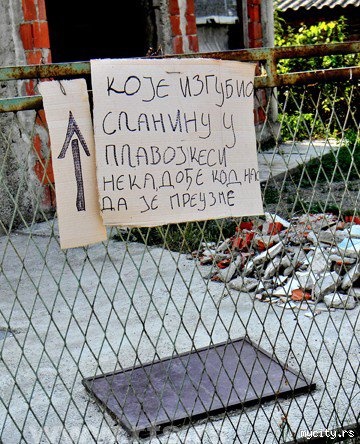 КОЈЕ ИЗГУБИО
СЛАНИНУ У
ПЛАВОЈКЕСИ
НЕКАДОЂЕ КОД НАС
ДА ЈЕ ПРЕУЗМЕ
mycity.rs